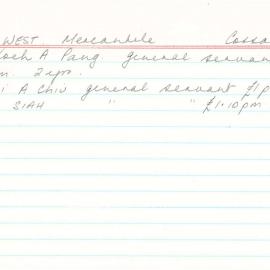 WEST. Mercantile Cossa
Koch A Pang. general servan
m. 2 yrs.
i A Chiu general servant £1 p
SIAH " " £1.10 pm